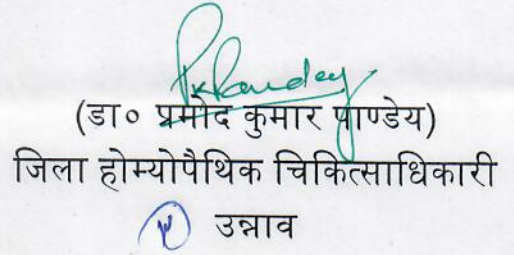 PkPandey
(डा० प्रमोद कुमार पाण्डेय)
जिला होम्योपैथिक चिकित्साधिकारी
उन्नाव